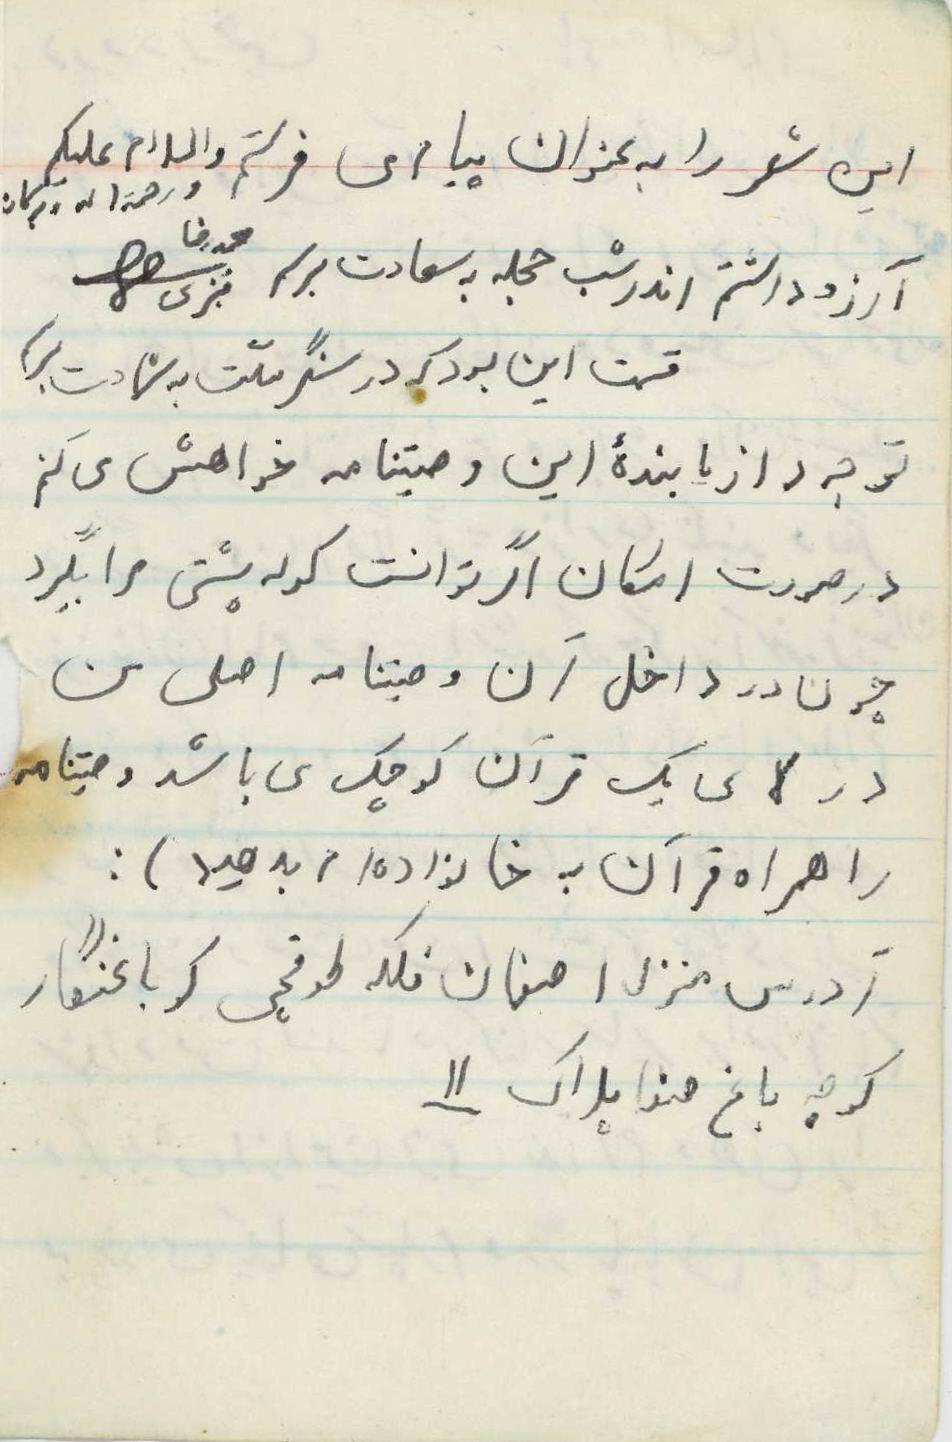 این شعر را به عنوان پیامی فرستم والسلام علیکم
و رحمة الله و برکاته
محمدرضا
آرزو داشتم اندر شب حجله به سعادت برسم
قسمت این بود که در سنگر ملت به شهادت برسم
توجه از یابندهٔ این وصیتنامه خواهش می کنم
در صورت امکان اگر توانست کوله پشتی مرا بگیرد
چون در داخل آن وصیتنامه اصلی من
در لای یک قرآن کوچک می باشد وصیتنامه
را همراه قرآن به خانواده ام بدهید ) :
آدرس منزل اصفهان فلکه طوقچی کو باغنگار
کوچه باغ صفا پلاک ۱۱